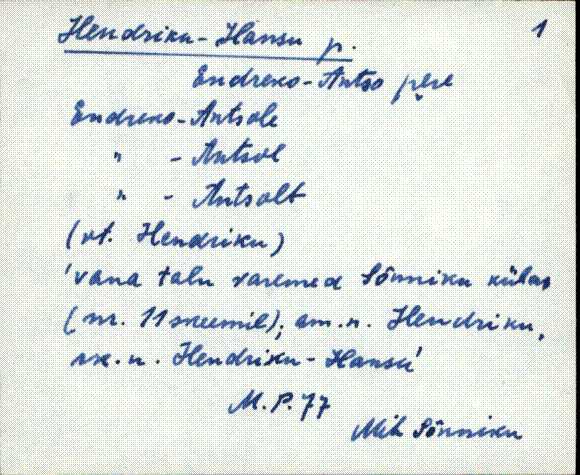 1
Hendriku-Hansu p.
Endreko-Antso pere
Endreko-Antsole
" - Antsol
" - Antsolt
(vt. Hendriku)
'vana talu varemed Sõnniku külas
(nr. 11 skeemil); am.n. Hendriku,
rk.n. Hendriku-Hansu'
M.P. 77
Mih Sõnniku